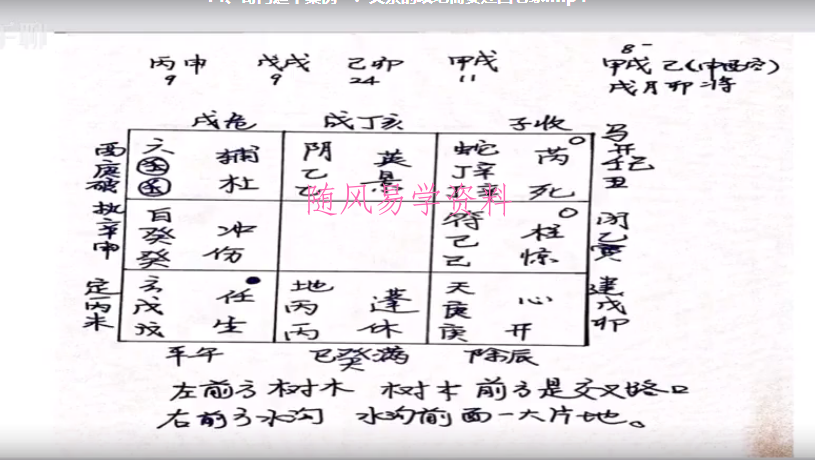 丙申 戊戌 己卯 甲戌 甲戌己(申酉空)
9 9 24 11 戌月卯将
戌危 戌丁亥 子收
六 辅 阴 英 蛇 芮
杜 乙 景 丁辛 死
乙
随风易学资料
白 冲 符 柱
癸 伤 己 惊
癸 己
玄 任 地 蓬 天 心
戊 生 丙 休 庚 开
丙 庚
平午 巳癸满 除辰
酉庚破
执辛申
定丙未
马
开壬己丑
闭乙寅
建戊卯
左前方树木 树木前方是交叉路口
右前方水沟 水沟前面一大片地。